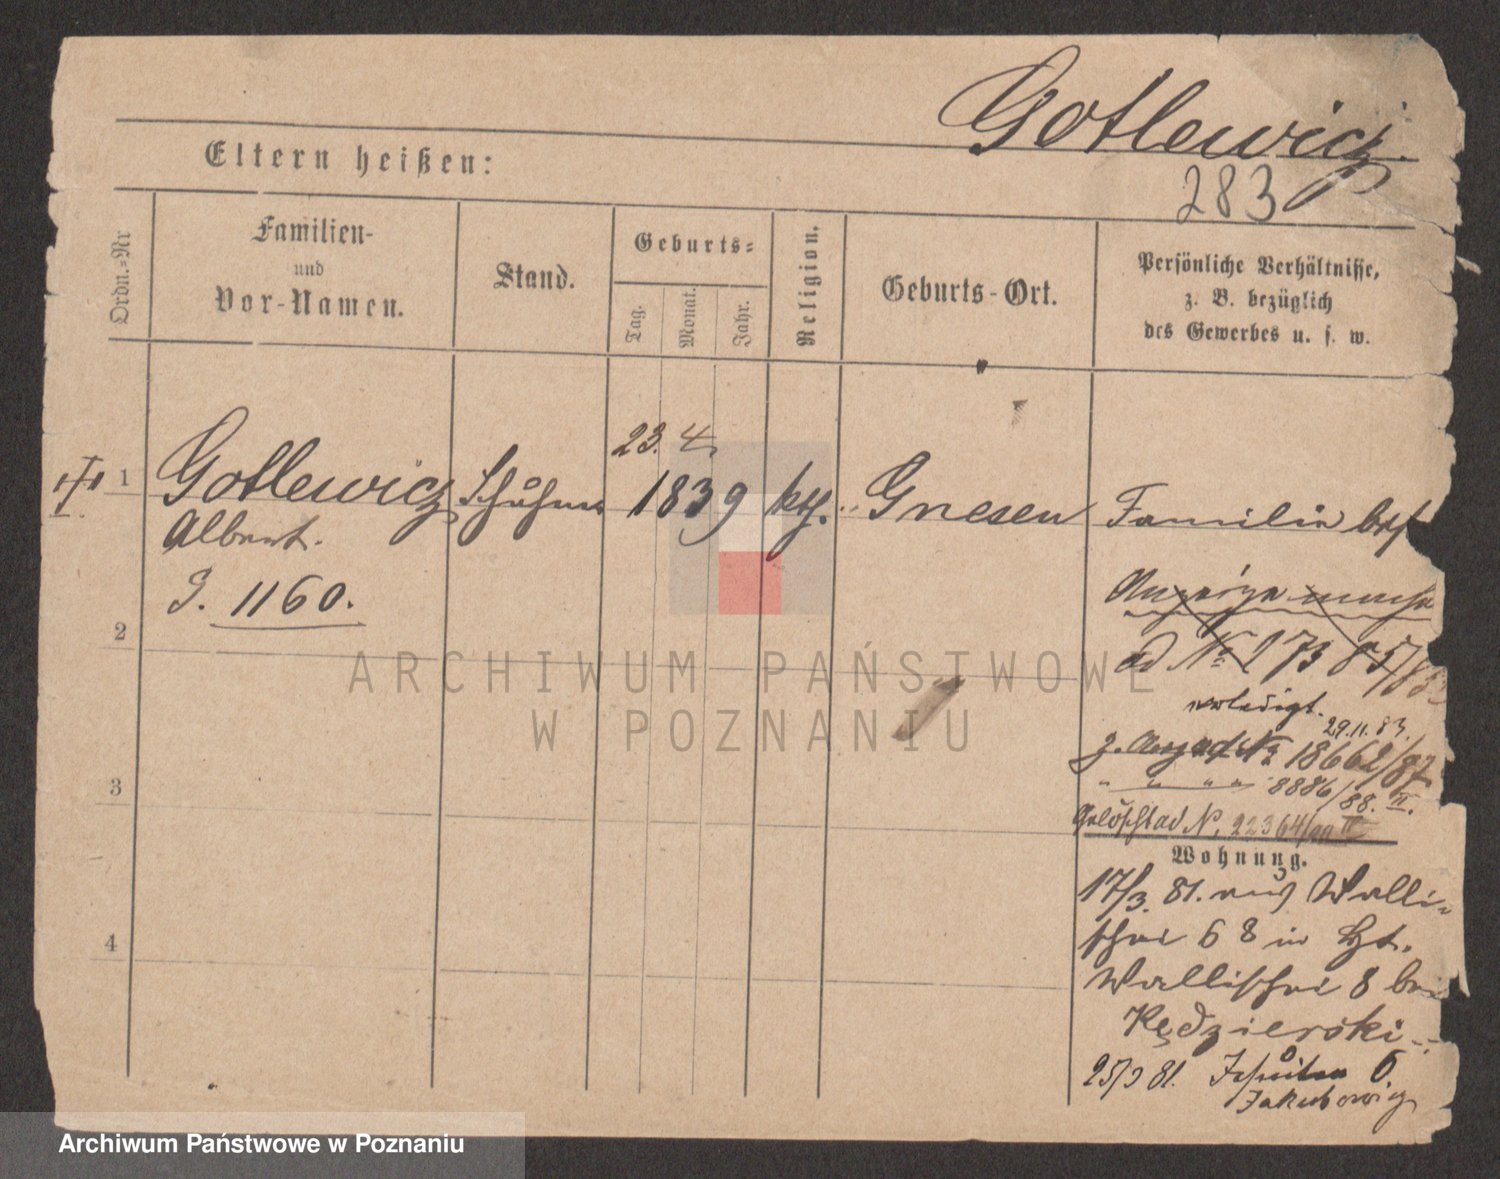 Gotlewicz.
Eltern heißen:
283
Ordn.=Nr
Familien-
und
Vor-Namen.
Stand.
Geburts=
Tag.
Monat.
Jahr.
Religion.
Geburts-Ort.
Persönliche Verhältnisse,
z. B. bezüglich
des Gewerbes u. s. w.
1
Gotlewicz
Albert.
J. 1160.
23. 4.
1839
kth.
Gnesen
Familie
Anzeige
ad No 273 85/83
erledigt.
29.11.83.
18662/87
8886/88. II.
Gelöscht ad N. 22364/90 IV
2
3
4
Wohnung.
17/3. 81. aus Walli-
schei 68 in
Wallischei 8 bei
Kędzierski.
25/3 81. Jesuiten 6
Jakubowicz
ARCHIWUM PAŃSTWOWE
W POZNANIU
Archiwum Państwowe w Poznaniu